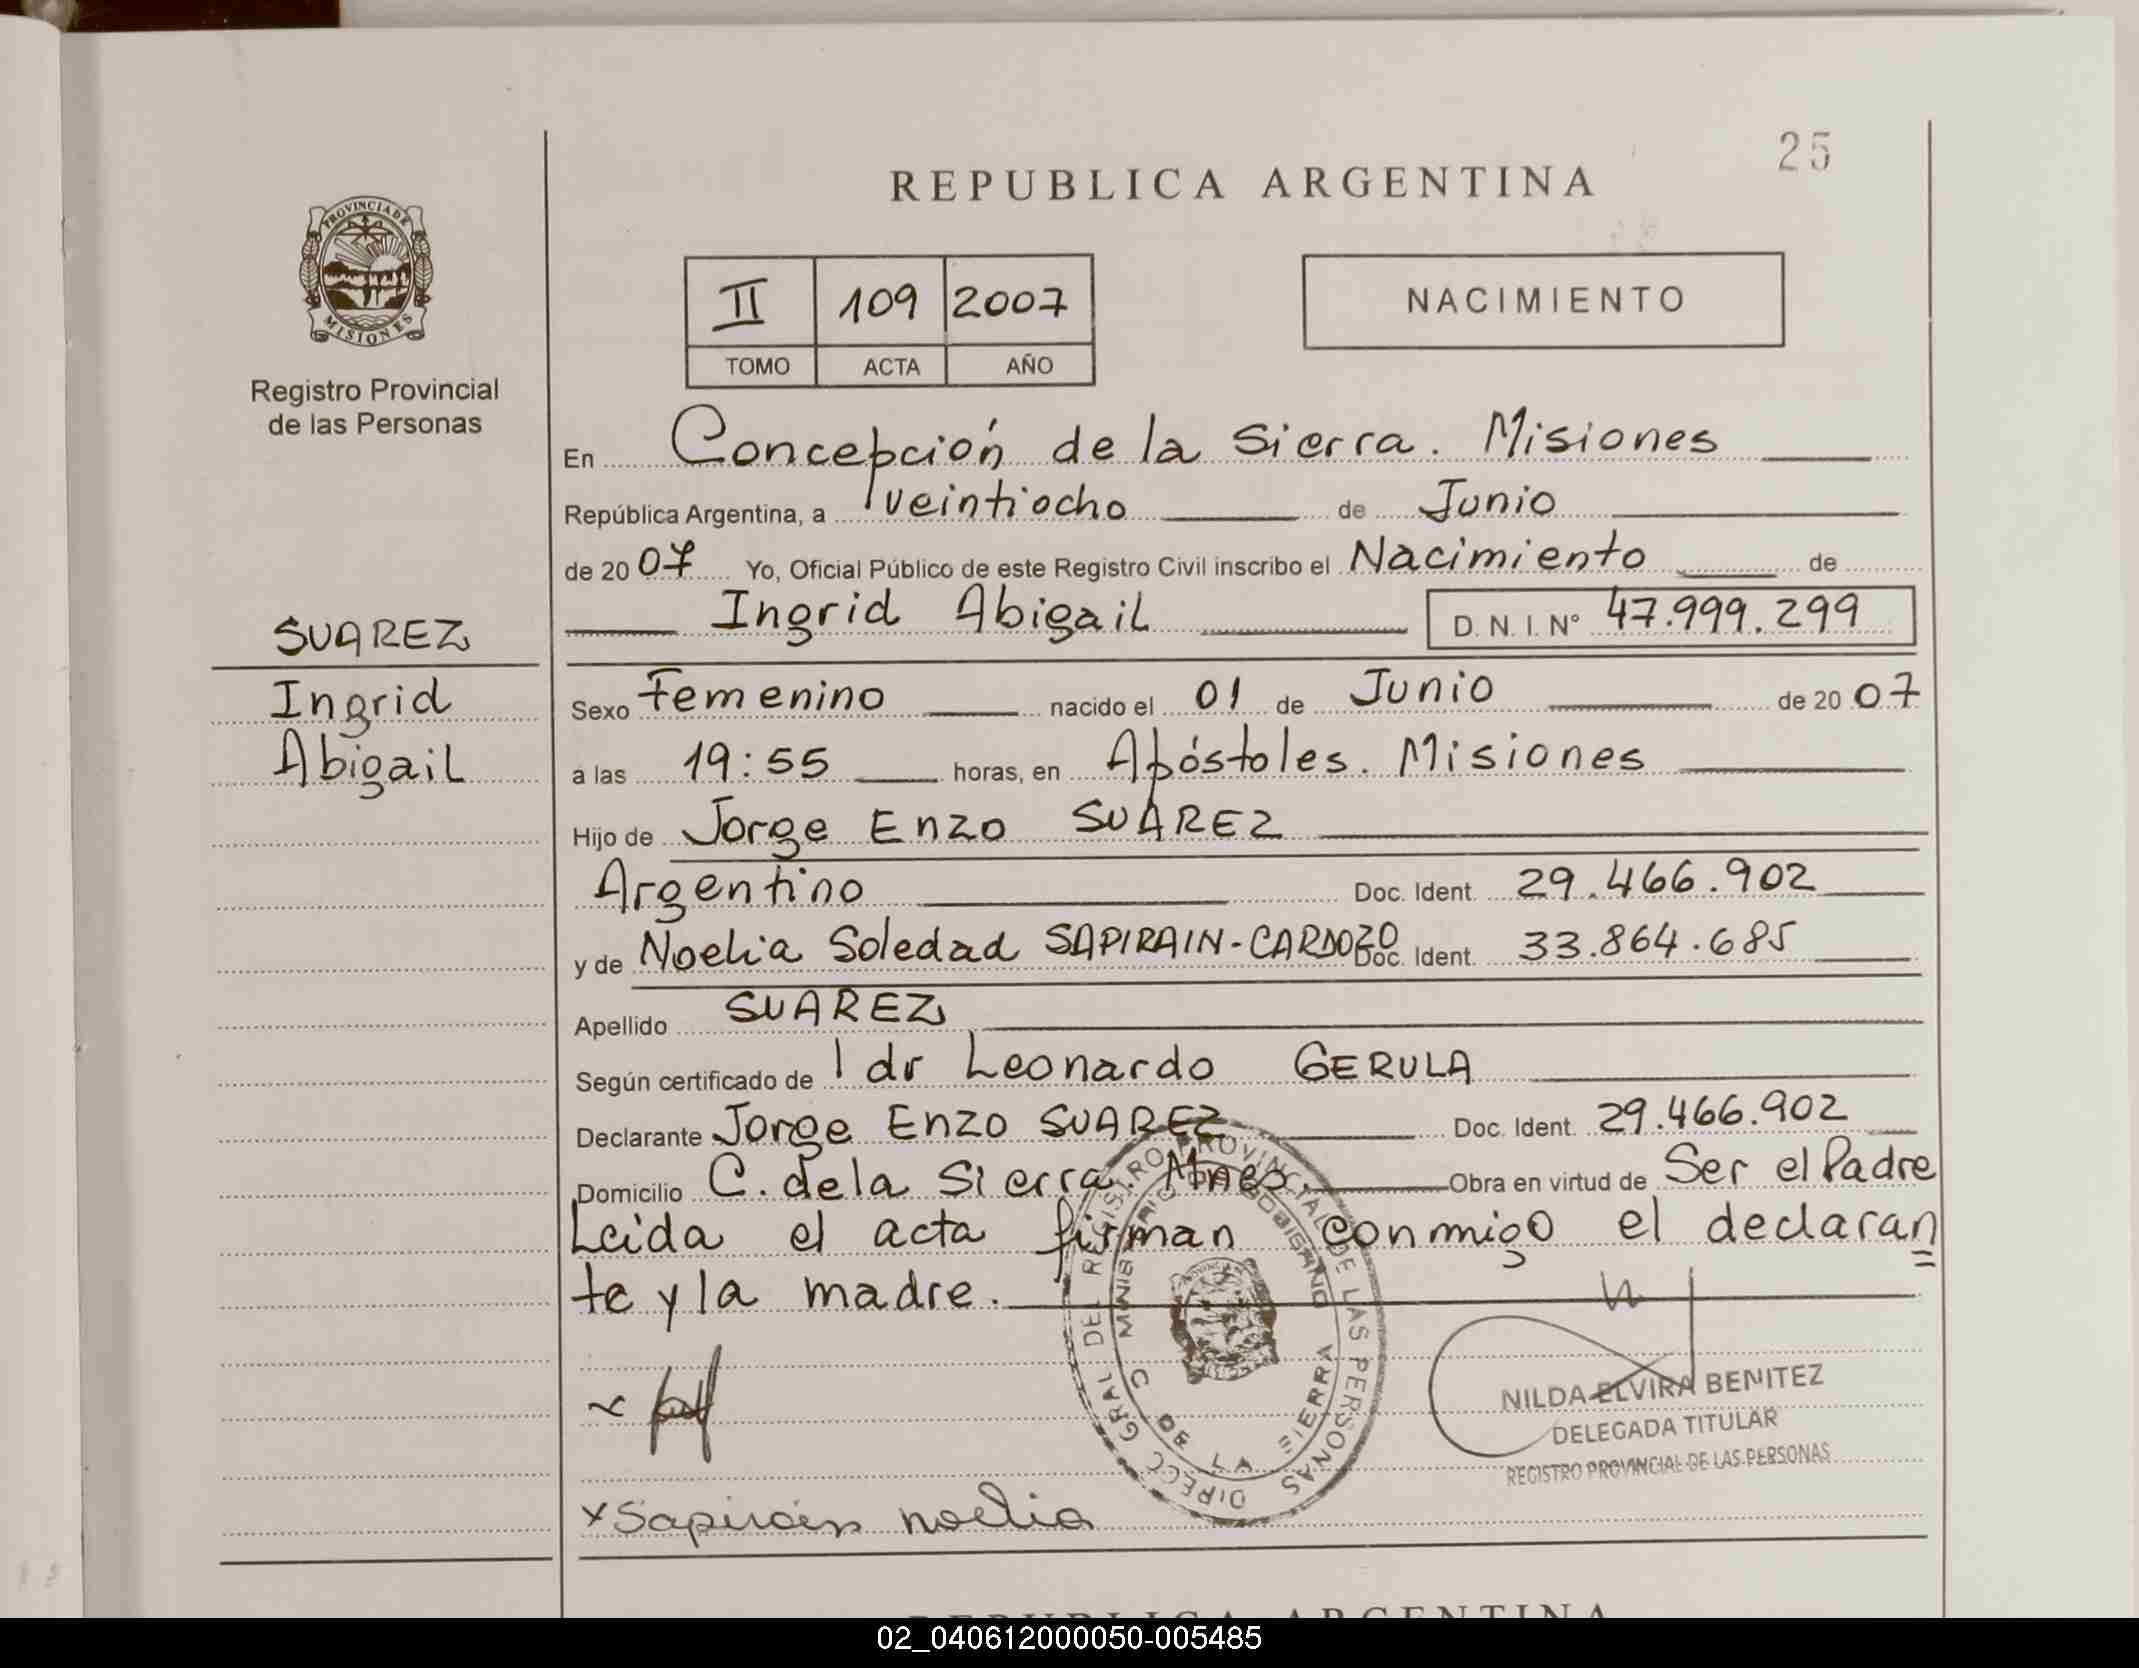 25
REPUBLICA ARGENTINA
PROVINCIA DE
MISIONES
Registro Provincial
de las Personas
II 109 2007
TOMO ACTA AÑO
NACIMIENTO
En Concepción de la Sierra. Misiones
República Argentina, a veintiocho de Junio
de 2007 Yo, Oficial Público de este Registro Civil inscribo el Nacimiento de
Ingrid Abigail D. N. I. N° 47.999.299
SUAREZ
Ingrid
Abigail
Sexo Femenino nacido el 01 de Junio de 2007
a las 19:55 horas, en Apóstoles. Misiones
Hijo de Jorge Enzo SUAREZ
Argentino Doc. Ident. 29.466.902
y de Noelia Soledad SAPIRAIN-CARDOZO Doc. Ident. 33.864.685
Apellido SUAREZ
Según certificado de l dr Leonardo GERULA
Declarante Jorge Enzo SUAREZ Doc. Ident. 29.466.902
Domicilio C. de la Sierra. Mnes. Obra en virtud de Ser el Padre
Leida el acta firman conmigo el declaran
te y la madre.
DIRECC GRAL DEL REGISTRO PROVINCIAL DE LAS PERSONAS
MINISTERIO DE GOBIERNO
C DE LA SIERRA
NILDA ELVIRA BENITEZ
DELEGADA TITULAR
REGISTRO PROVINCIAL DE LAS PERSONAS
x Sapirain noelia
REPUBLICA ARGENTINA
02_040612000050-005485